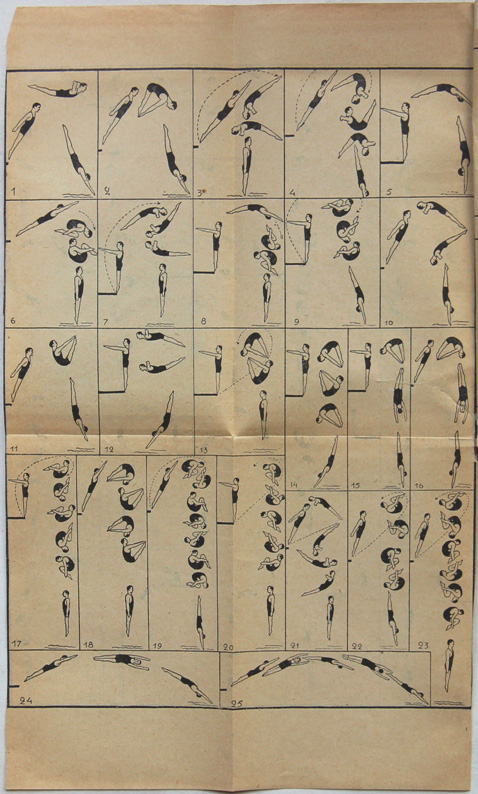 1 2 3* 4 5
6 7 8 9 10
11 12 13 14 15 16
17 18 19 20 21 22 23
24 25